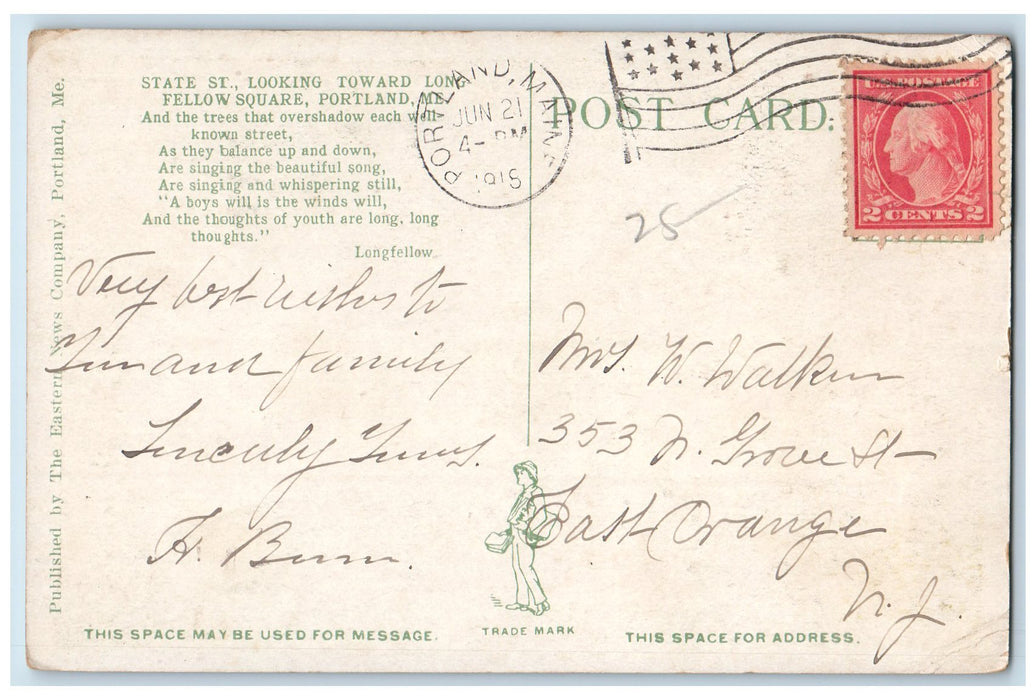 STATE ST., LOOKING TOWARD LONG
FELLOW SQUARE, PORTLAND, ME.
And the trees that overshadow each well
known street,
As they balance up and down,
Are singing the beautiful song,
Are singing and whispering still,
"A boys will is the winds will,
And the thoughts of youth are long, long
thoughts."
Longfellow
Very best wishes to
and family
Sincerely Yours.
H.
Published by The Eastern News Company, Portland, Me.
THIS SPACE MAY BE USED FOR MESSAGE.
TRADE MARK
PORTLAND, MAINE
JUN 21
4- PM
POST CARD.
U.S. POSTAGE
2 CENTS 2
28
Mrs. W. Walker
353 N. Grove St
East Orange
N. J.
THIS SPACE FOR ADDRESS.